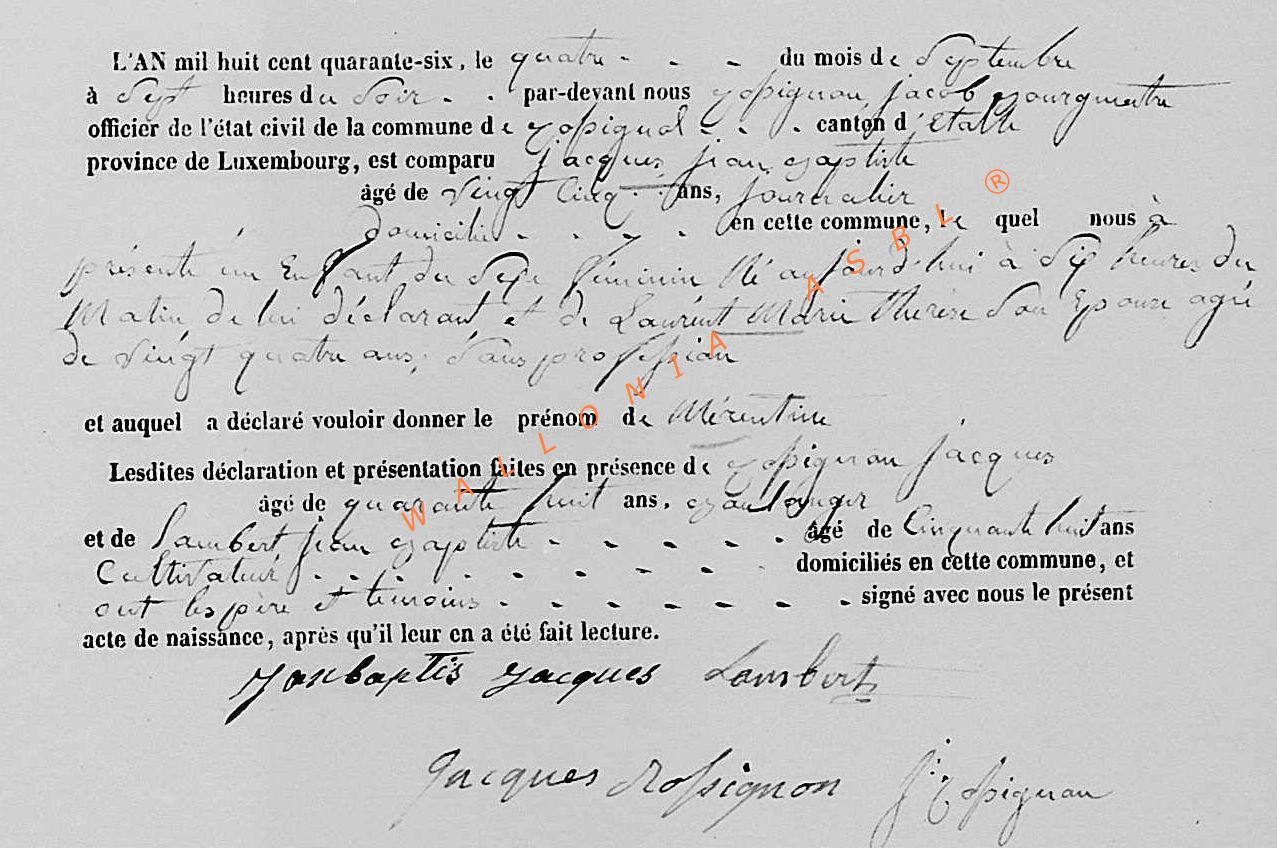 L'AN mil huit cent quarante-six, le quatre - - - du mois de Septembre
à Sept heures du Soir - - par-devant nous Rossignon, jacob, Bourgmestre
officier de l'état civil de la commune de Rossignol - - - canton d'étalle
province de Luxembourg, est comparu jacques, jean, Baptiste
âgé de Vingt Cinq ans, journalier
domicilié - - - - en cette commune, le quel nous à
présenté un Enfant du Sexe féminin Né aujourd'hui à Six heures du
Matin, de lui déclarant, et de Laurent Marie Thérèse Son Epouse agé
de Vingt quatre ans, Sans profession
et auquel a déclaré vouloir donner le prénom de
Lesdites déclaration et présentation faites en présence de Rossignon jacques
âgé de quarante huit ans, Boulanger
et de Lambert, jean Baptiste - - - - - âgé de Cinquante huit ans
Cultivateur - - - - - - - - domiciliés en cette commune, et
ont les père et témoins - - - - - - - signé avec nous le présent
acte de naissance, après qu'il leur en a été fait lecture.
Janbaptis Jacques Lambert
Jacques Rossignon J. Rossignon
WALLONIA ASBL ®